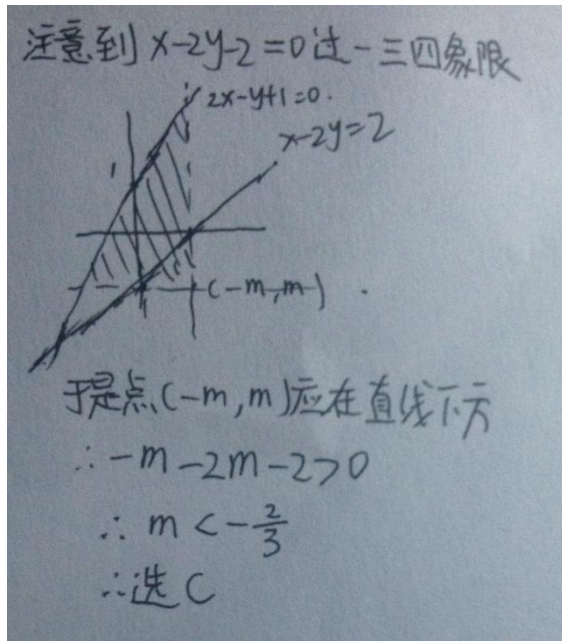 注意到 x-2y-2=0过一三四象限
2x-y+1=0.
x-2y=2
1
(-m,m)
于是点(-m,m)应在直线下方
∴-m-2m-2>0
∴ m<-2/3
∴选C